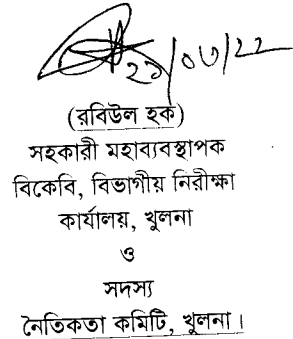 (রবিউল হক)
সহকারী মহাব্যবস্থাপক
বিকেবি, বিভাগীয় নিরীক্ষা
কার্যালয়, খুলনা
ও
সদস্য
নৈতিকতা কমিটি, খুলনা।